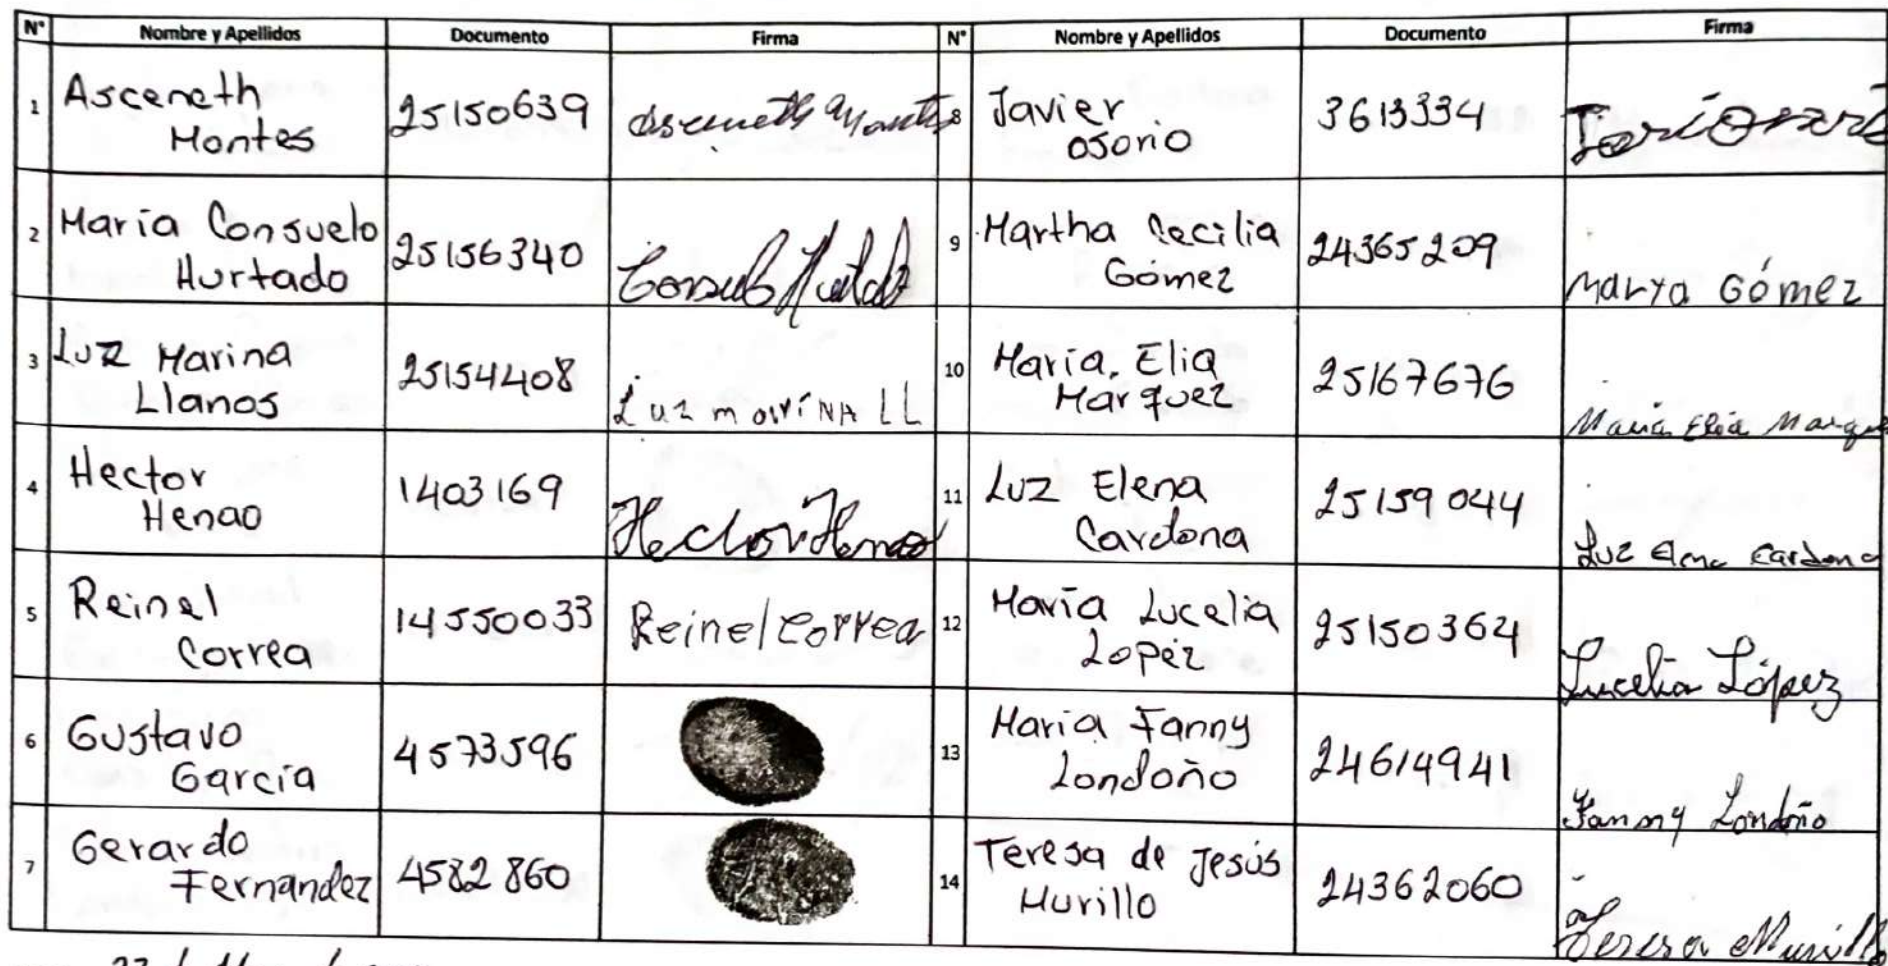 N° Nombre y Apellidos Documento Firma N° Nombre y Apellidos Documento Firma
1 Asceneth Montes 25150639 Asceneth Montes
8 Javier Osorio 3613334
2 María Consuelo Hurtado 25156340 Consuelo Hurtado
9 Martha Cecilia Gómez 24365209 Marta Gómez
3 Luz Marina Llanos 25154408 Luz marina LL
10 María Elia Marquez 25167676 Maria Elia Marque
4 Hector Henao 1403169 Hector Henao
11 Luz Elena Cardona 25159044 Luz Elena Cardona
5 Reinel Correa 14550033 Reinel Correa
12 María Lucelia Lopéz 25150364 Lucelia López
6 Gustavo García 4573596
13 María Fanny Londoño 24614941 Fanny Londoño
7 Gerardo Fernandez 4582860
14 Teresa de Jesús Murillo 24362060 Teresa Murillo